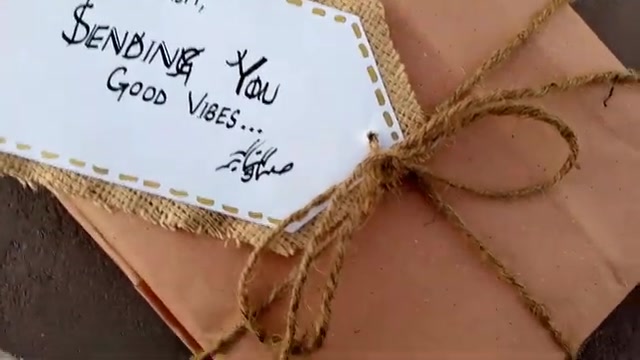 SENDING YOU
GOOD VIBES...